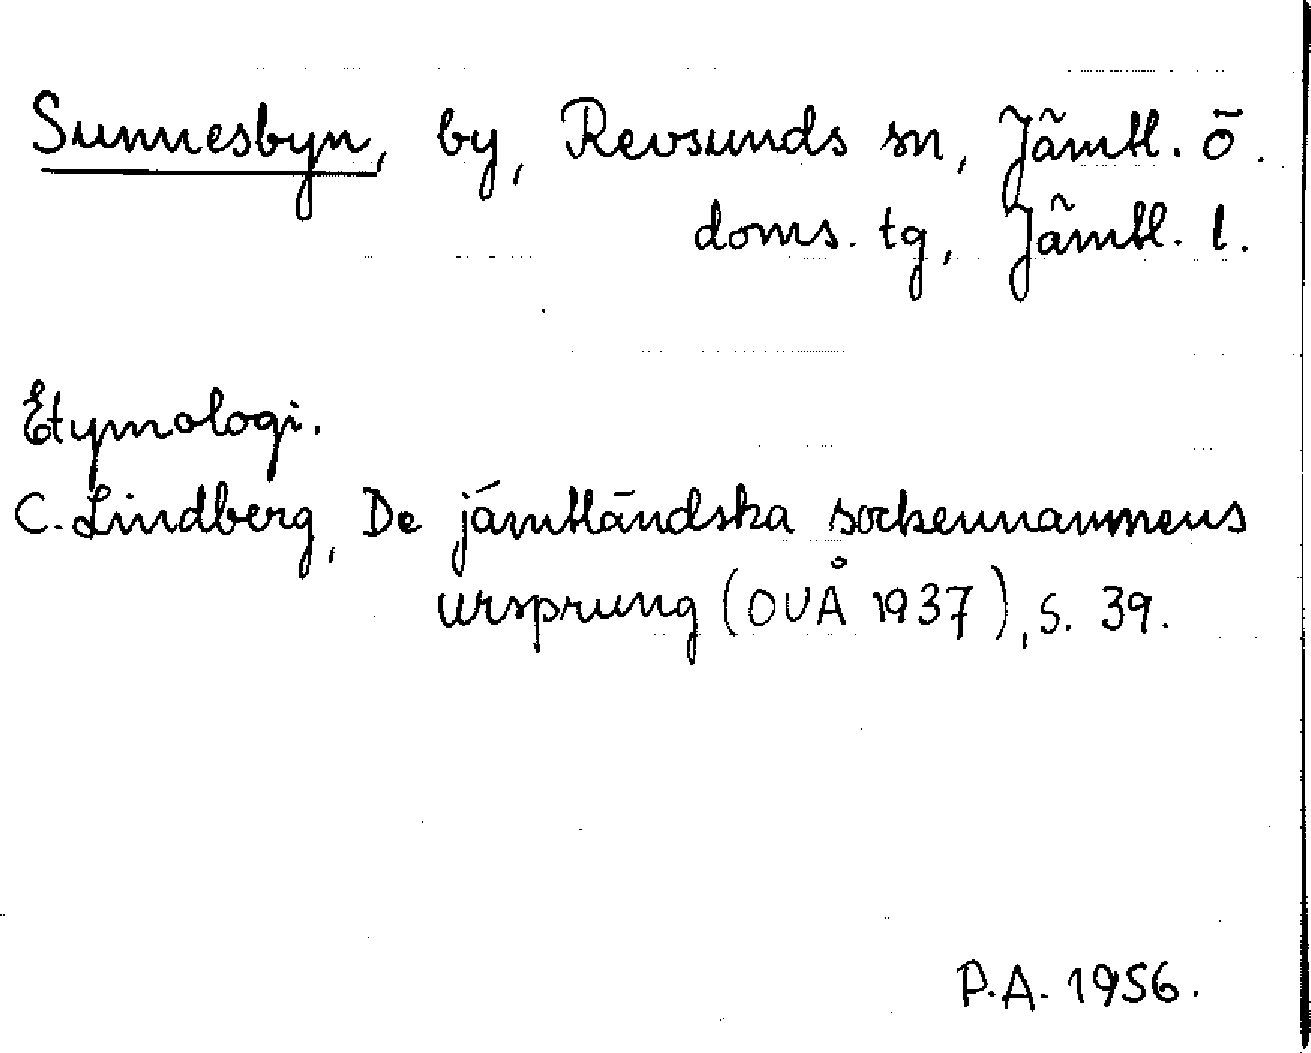 Sunnesbyn, by, Revsunds sn, Jämtl. ö.
doms. tg, Jämtl. l.
Etymologi.
C. Lindberg, De jämtländska sockennamnens
ursprung (OUÅ 1937), s. 39.
P.A. 1956.